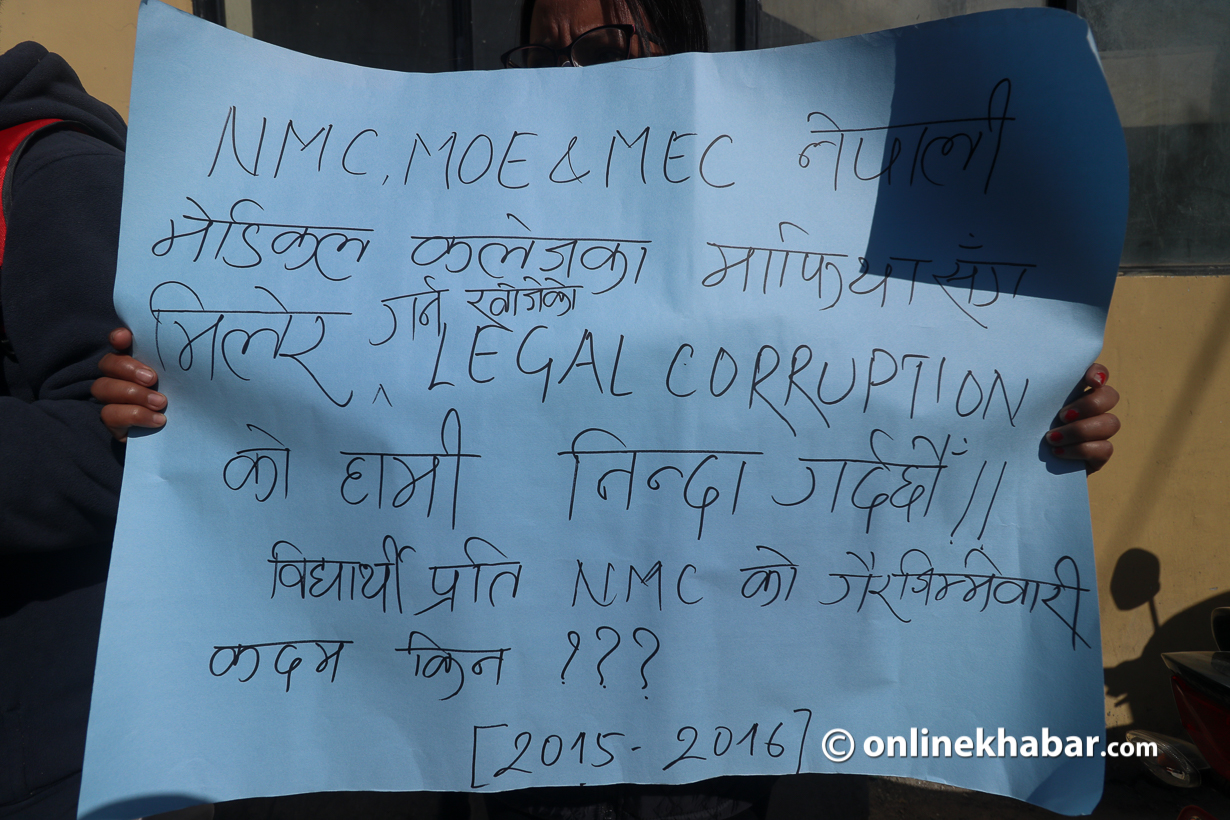 NMC, MOE & MEC नेपाली
मेडिकल कलेजका माफिया सँग
मिलेर गर्न खोजेको LEGAL CORRUPTION
को हामी निन्दा गर्दछौं!!
विद्यार्थी प्रति NMC को गैरजिम्मेवारी
कदम किन ???
[2015-2016]
© onlinekhabar.com